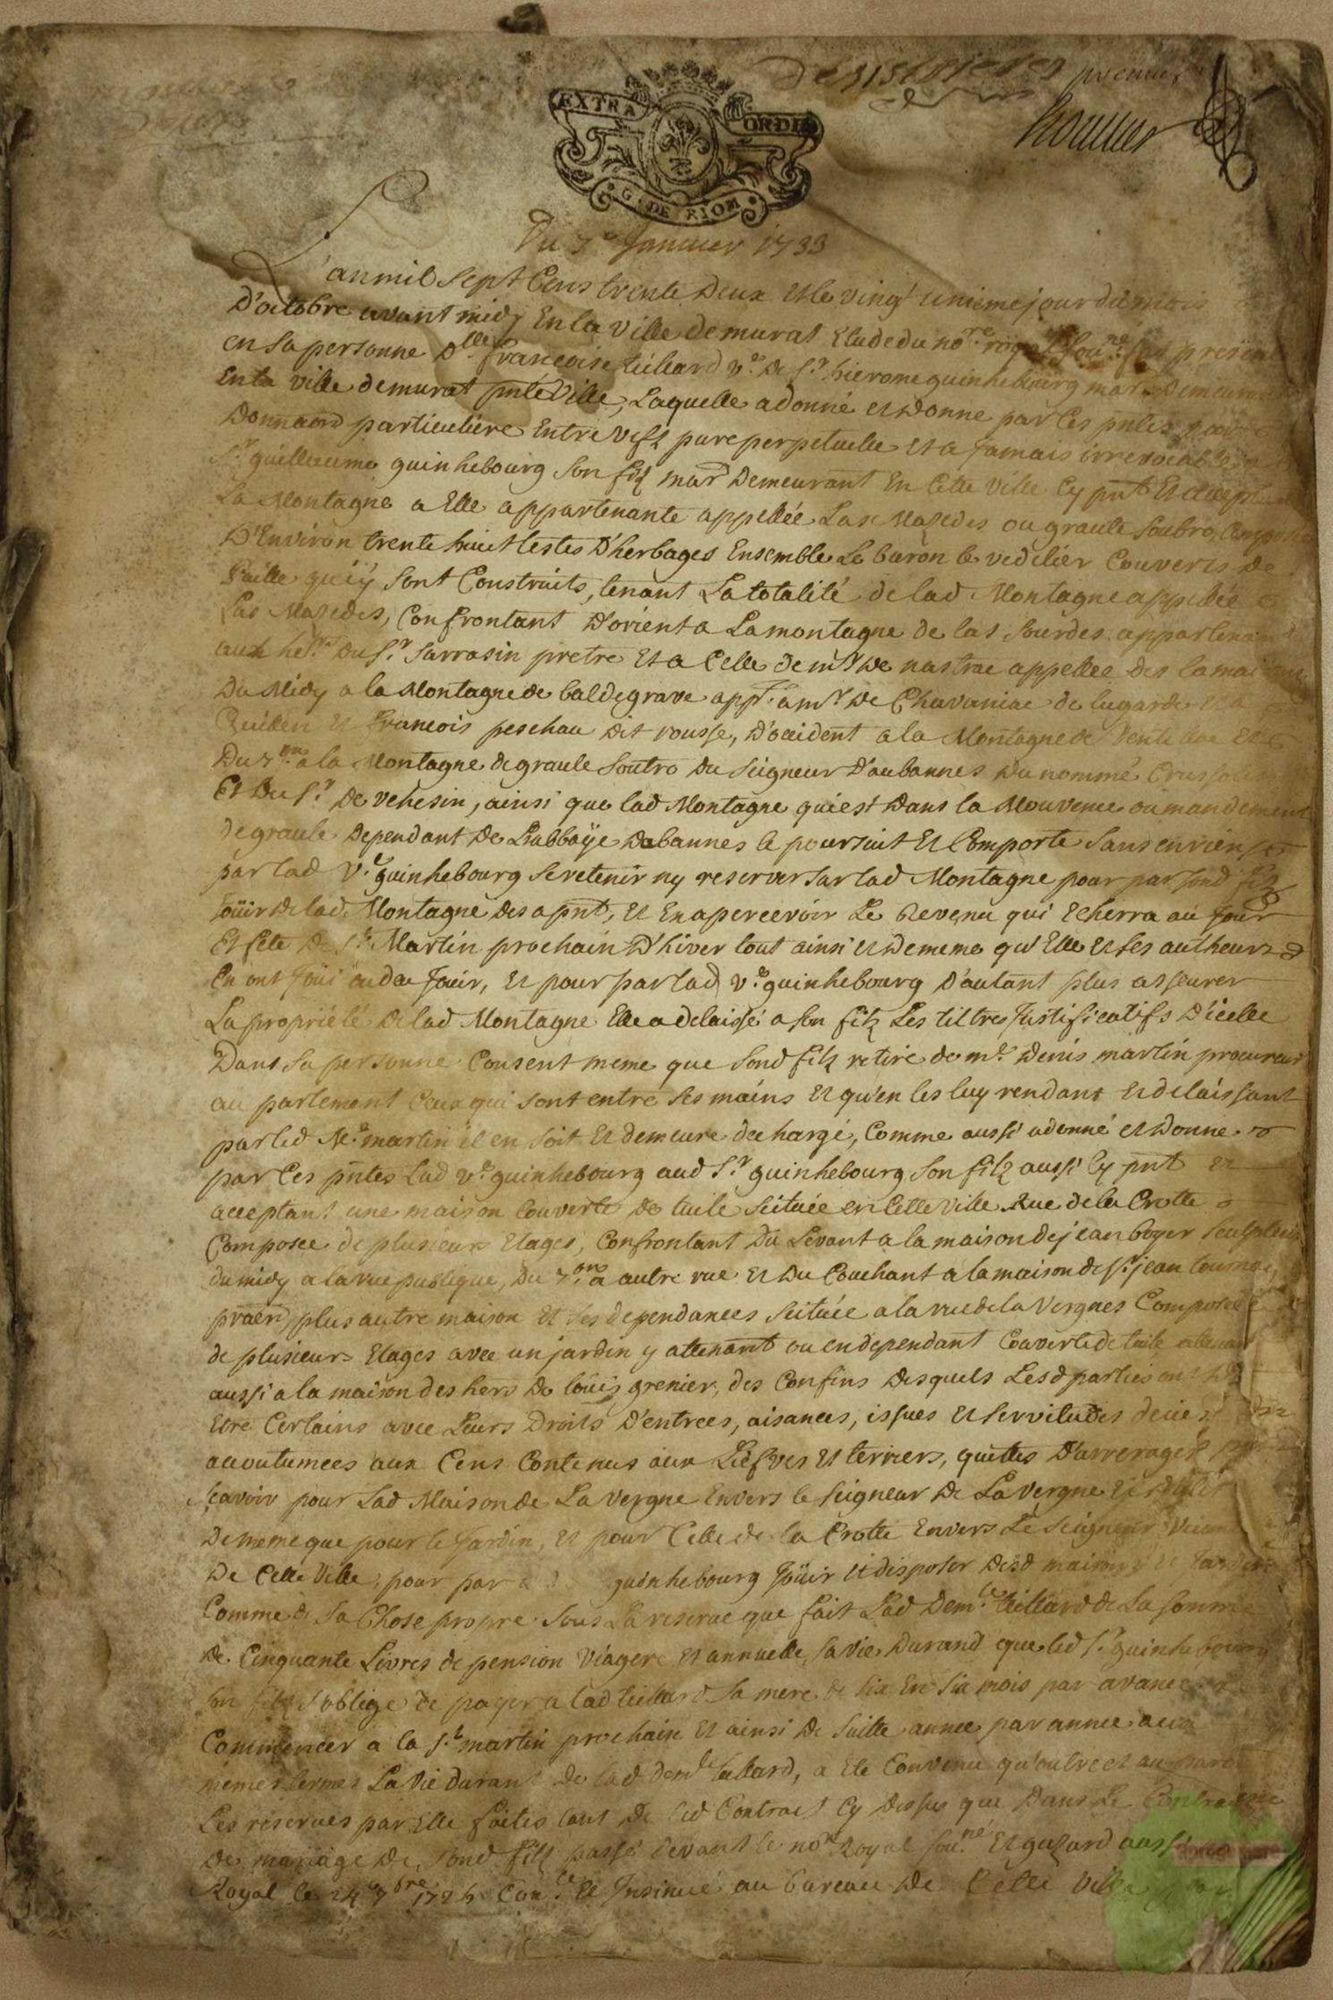 premier
EXTRA ORDIN
G. DE RIOM
Du 7e Janvier 1733
L'an mil sept Cens trente Deux et le vingt unieme jour du mois
D'octobre avant midy En la ville de murat Etude du nore royal sousné fut presente
en sa personne Dlle francoise teillard ve De Sr hierome guinhebourg mard Demeurant
En la ville de murat pnte Ville, Laquelle a donné et Donne par Ces pntes par
Donnaond particuliere Entre vifz pure perpetuelle et a Jamais irrevocable a
Sr guilleaume guinhebourg son filz mard Demeurant En Cette Ville Cy pnt Et accept
La Montagne a Elle appartenante appellée Las Mazedes ou graule soubro, Composée
D'Environ trente huit testes D'herbages Ensemble Le buron & vedelier Couverts De
Paille qui y sont Construits, tenant La totalité de lad Montagne appellée
Las Mazedes, Confrontant D'orient a La montagne de las sourdes appartenant
aux hers Du Sr Sarrasin pretre Et a Celle de mr De nastrac appellée des
Du Midy a la Montagne de baldegrave appt a mr De Chavaniac de lugarde et a
et francois peschau Dit rousse, D'occident a la Montagne de
Du 7on a la Montagne de graule soutro Du Seigneur D'aubannes Du nommé
Et Du Sr De vehesin, ainsi que lad Montagne qui est Dans la Mouvence ou mandement
de graule Dependant De L'abbaÿe Dabannes se poursuit Et Comporte Sans en rien
par lad ve guinhebourg se retenir ny reserver sur lad Montagne pour par sond filz
Joüir de lad Montagne des apnt, et En apercevoir Le Revenu qui Echerra au Jour
Et fete De St Martin prochain D'hiver tout ainsi et De meme qu'Elle et ses autheurs
En ont Joüi ou deu Joüir, et pour par lad ve guinhebourg D'autant plus asseurer
La propriété De lad Montagne Elle a delaissé a son filz Les tiltres Justificatifs D'icelle
Dans sa personne Consent meme que sond filz retire de me Denis martin procureur
au parlement Ceux qui sont entre ses mains et qu'en les luy rendant et delaissant
par led Me martin il en soit et demeure dechargé, Comme aussi a donné et Donne
par Ces pntes Lad ve guinhebourg aud Sr guinhebourg son filz aussi Cy pnt et
acceptant une maison Couverte De tuile scituée en Cette Ville Rue de la Crotte
Composee de plusieurs Etages, Confrontant Du Levant a la maison de jean boyer sculpteur
du midy a la rue publique, du 7on a autre rue et Du Couchant a la maison de Sr jean
plus autre maison et ses dependances scituée a la rue de la Vergnes Composée
de plusieurs Etages avec un jardin y attenant ou en dependant Couverte de tuile
aussi a la maison des hers De loüis grenier, des Confins Desquels Lesd parties ont dit
Etre Certains avec Leurs Droits D'entrees, aisances, issues et servitudes
acoutumees aux Cens Contenus aux Liefves et terriers, quittes D'arrerages
sçavoir pour Lad Maison de La Vergne Envers le Seigneur De La vergne
De meme que pour le Jardin, et pour Celle de la Crotte Envers Le Seigneur
De Cette Ville, pour par guinhebourg Joüir et disposer Desd maisons et Jardin
Comme de sa Chose propre sous La reserve que fait Lad Demlle teillard de La somme
De Cinquante Livres de pension Viagere et annuelle, sa vie Durand que led Sr guinhebourg
son filz s'oblige De payer a lad teillard sa mere de six En six mois par avance
Commencer a la St martin prochain et ainsi De suitte annee par annee aux
memes termes La Vie durant De lad demlle teillard, a ete Convenu qu'outre et au pardessus
Les reserves par Elle faites tant De led Contract Cy Dessus que Dans Le Contract
De mariage De sond filz passé devant le nore Royal sousné Et guzard aussi
Royal le 24 7bre Conle et Insinué au bureau De Cette Ville